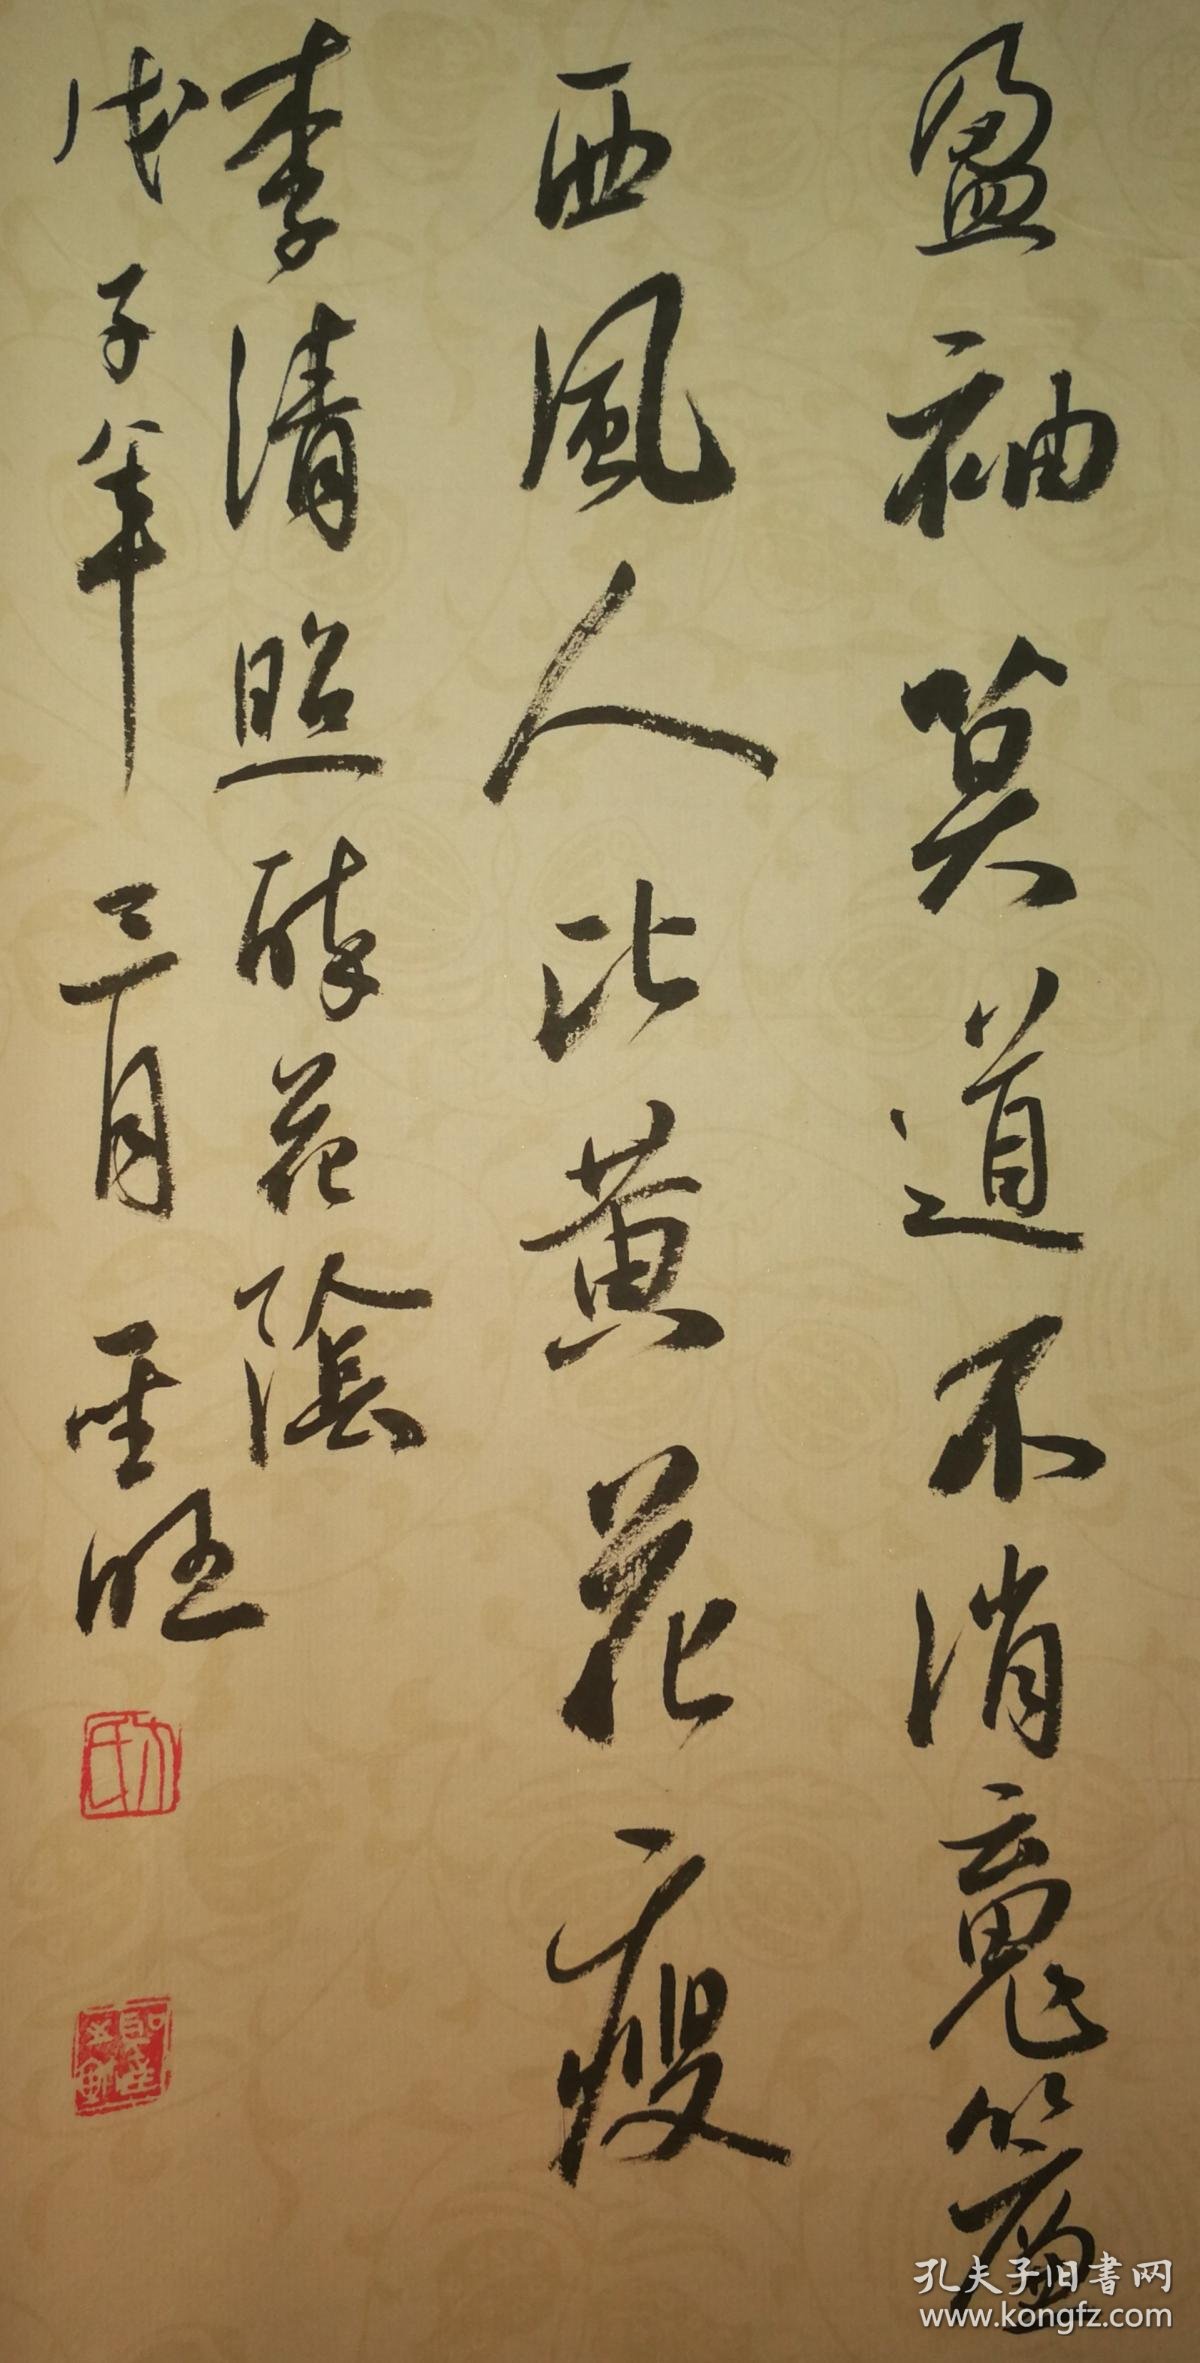 盈袖莫道不消魂簾
西風人比黄花瘦
李清照醉花陰
戊子年三月 聖旺
孔夫子旧書网
www.kongfz.com